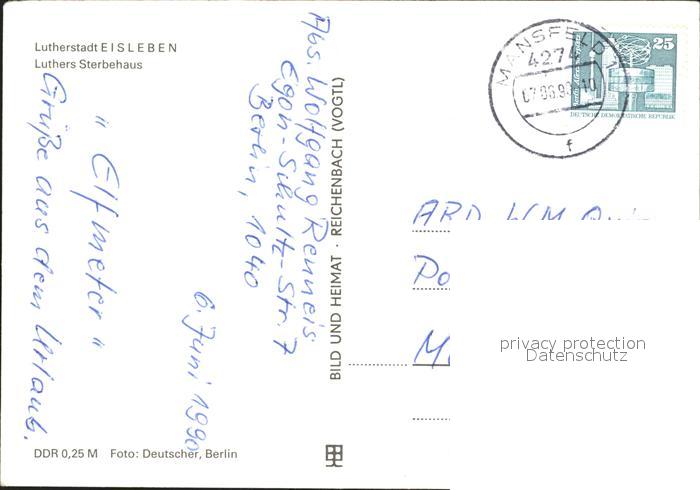 Lutherstadt EISLEBEN
Luthers Sterbehaus
Grüße aus dem Urlaub.
"Elfmeter"
6. Juni 1990
Abs. Wolfgang Renneis
Egon-Schultz-Str. 7
Berlin, 1040
BILD UND HEIMAT · REICHENBACH (VOGTL)
DDR 0,25 M Foto: Deutscher, Berlin
MANSFELD 1
4274
07.06.90-10
f
25
DEUTSCHE DEMOKRATISCHE REPUBLIK
ARD WM
Po
M
privacy protection
Datenschutz